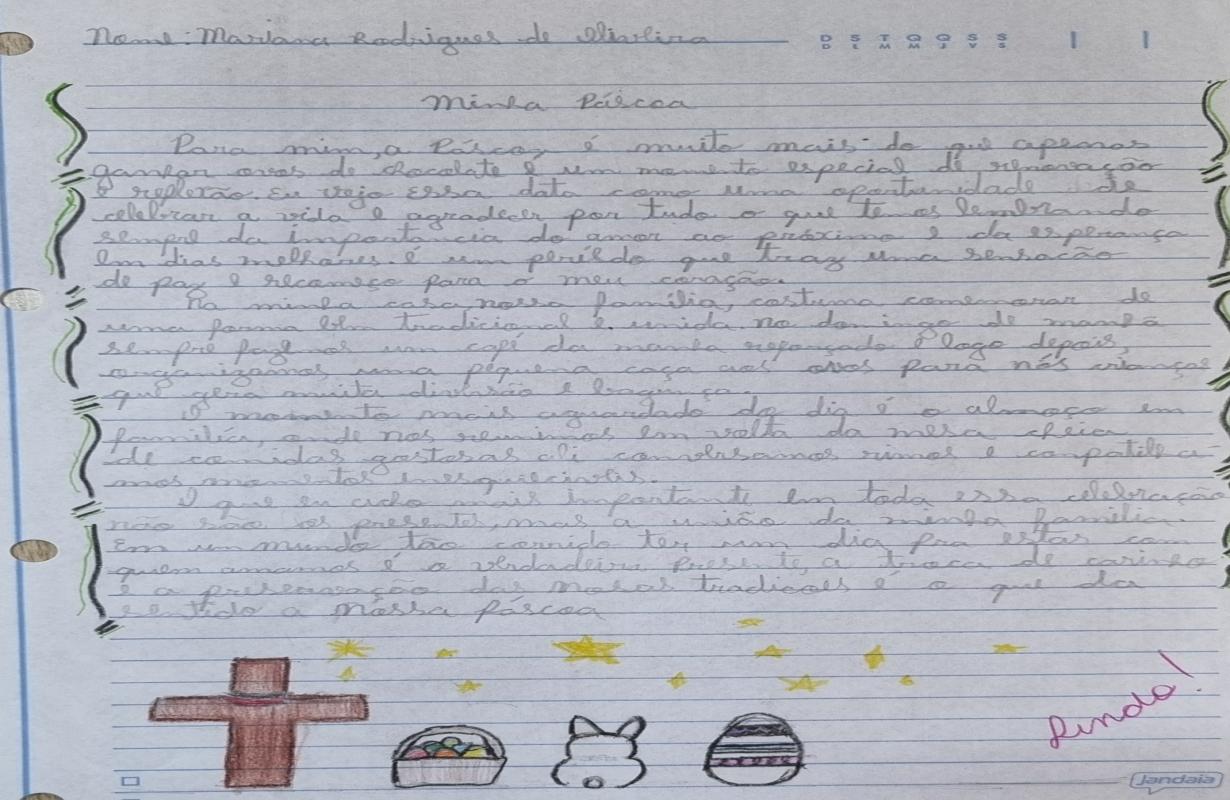 Nome: Mariana Rodrigues de Oliveira
D S T Q Q S S
D L M M J V S
Minha Páscoa
Para mim, a Páscoa, é muito mais do que apenas
ganhar ovos de chocolate é um momento especial de renovação
e reflexão. Eu vejo essa data como uma oportunidade de
celebrar a vida e agradecer por tudo o que temos lembrando
sempre da importância do amor ao próximo e da esperança
em dias melhores. é um período que traz uma sensação
de paz e recomeço para o meu coração.
Na minha casa, nossa família, costuma comemorar de
uma forma bem tradicional e unida. no domingo de manhã
sempre fazemos um café da manhã reforçado e logo depois,
organizamos uma pequena caça aos ovos para nós crianças
que gera muita diversão e bagunça.
O momento mais aguardado do dia é o almoço em
família, onde nos reunimos em volta da mesa cheia
de comidas gostosas ali conversamos rimos e conpatilha
mos momentos inesquecíveis.
O que eu acho mais importante em toda essa celebração
não são os presentes, mas a união da minha família.
Em um mundo tão corrido ter um dia pra estar com
quem amamos é o verdadeiro presente, a troca de carinho
e a preservação das nossas tradicoes é o que da
sentido a nossa Páscoa
Lindo!
Jandaia